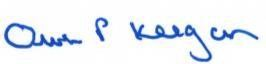 Owen P Keegan